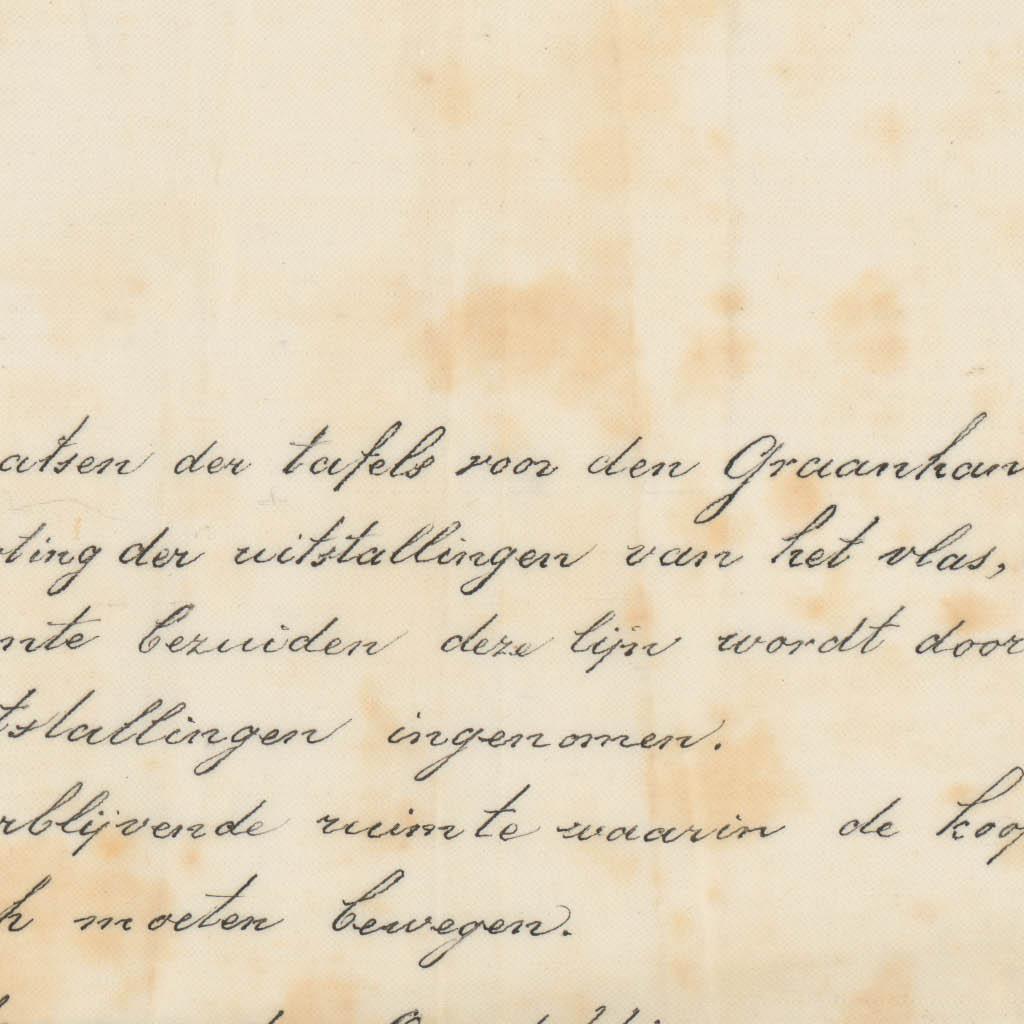 atsen der tafels voor den Graanhan
ting der uitstallingen van het vlas,
mte bezuiden deze lijn wordt door
tstallingen ingenomen.
rblijvende ruimte waarin de koop
h moeten bewegen.